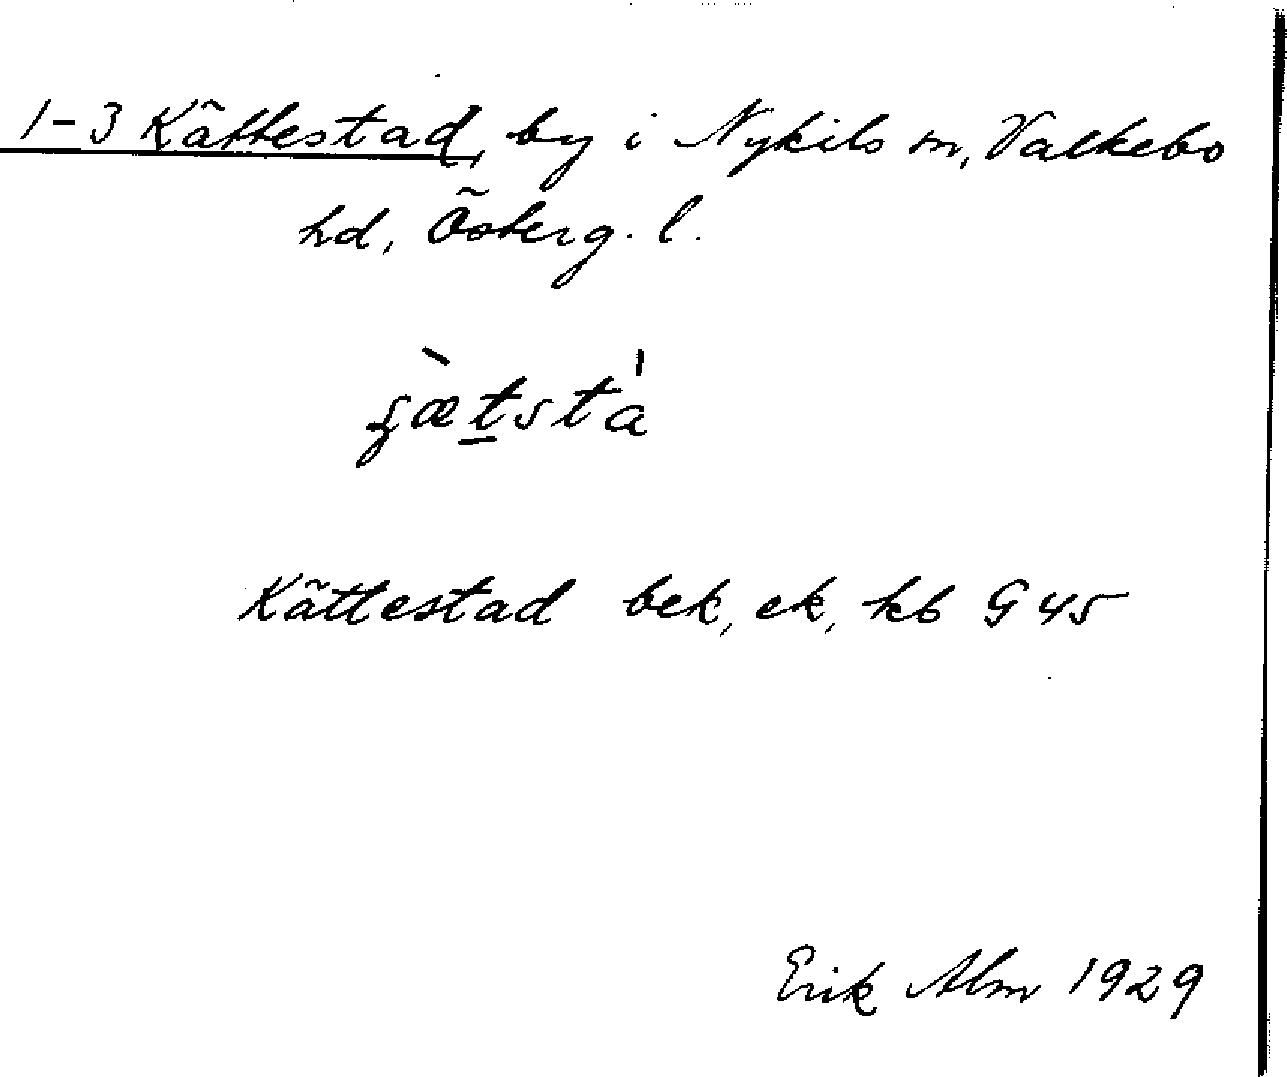 1-3 Kättestad, by i Nykils sn, Valkebo
hd, Österg. l.
Kättestad bek, ek, kb G 45
Erik Alm 1929